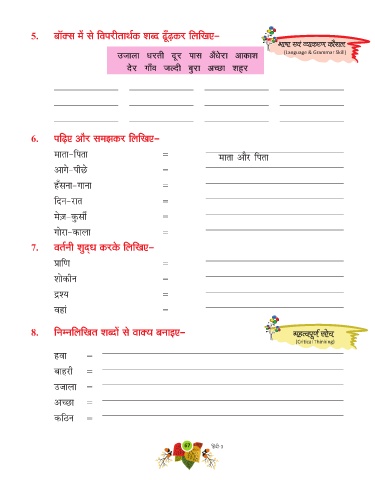 5. बॉक्स में से विपरीतार्थक शब्द ढूँढ़कर लिखिए–
भाषा एवं व्याकरण कौशल
(Language & Grammar Skill)
उजाला धरती दूर पास अँधेरा आकाश
देर गाँव जल्दी बुरा अच्छा शहर
6. पढ़िए और समझकर लिखिए–
माता-पिता = माता और पिता
आगे-पीछे =
हँसना-गाना =
दिन-रात =
मेज़-कुर्सी =
गोरा-काला =
7. वर्तनी शुद्ध करके लिखिए–
प्राणि =
शोकीन =
द्रश्य =
वहां =
8. निम्नलिखित शब्दों से वाक्य बनाइए–
महत्वपूर्ण सोच
(Critical Thinking)
हवा =
बाहरी =
उजाला =
अच्छा =
कठिन =
67 हिंदी